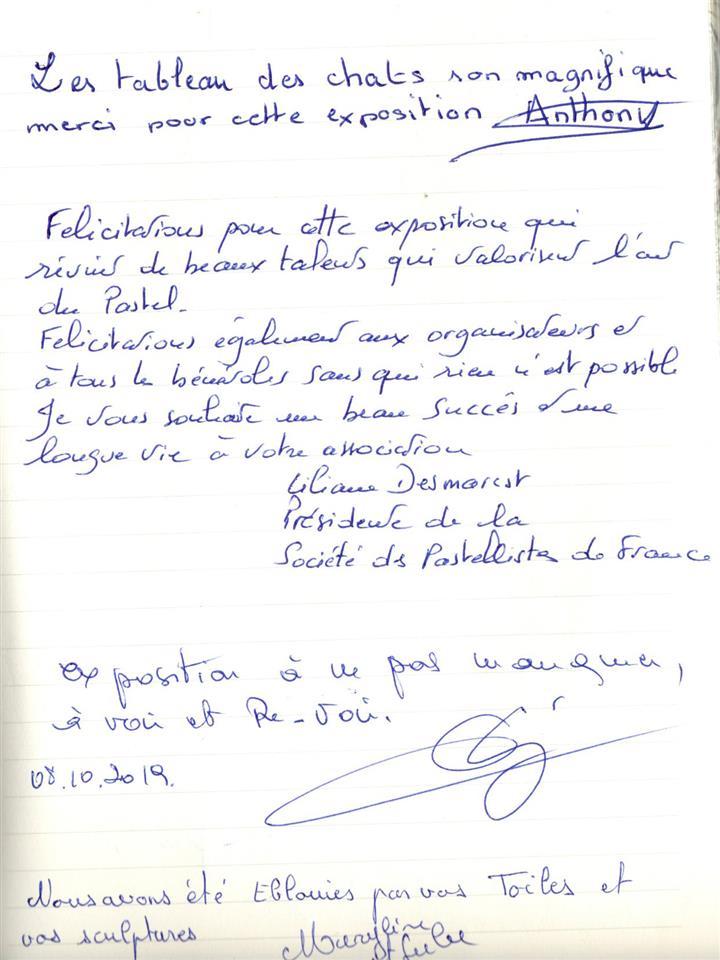 Les tableau des chats son magnifique
merci pour cette exposition Anthony
Felicitations pour cette exposition qui
réunit de beaux talents qui valorisent l'art
du Pastel.
Felicitations également aux organisateurs et
à tous les bénévoles sans qui rien n'est possible
Je vous souhaite un beau succés et une
longue vie à votre association
Liliane Desmarest
Présidente de la
Société des Pastellistes de France
exposition à ne pas manquer,
à voir et Re-voir.
08.10.2019.
Nous avons été Eblouies par vos Toiles et
vos sculptures Maryline